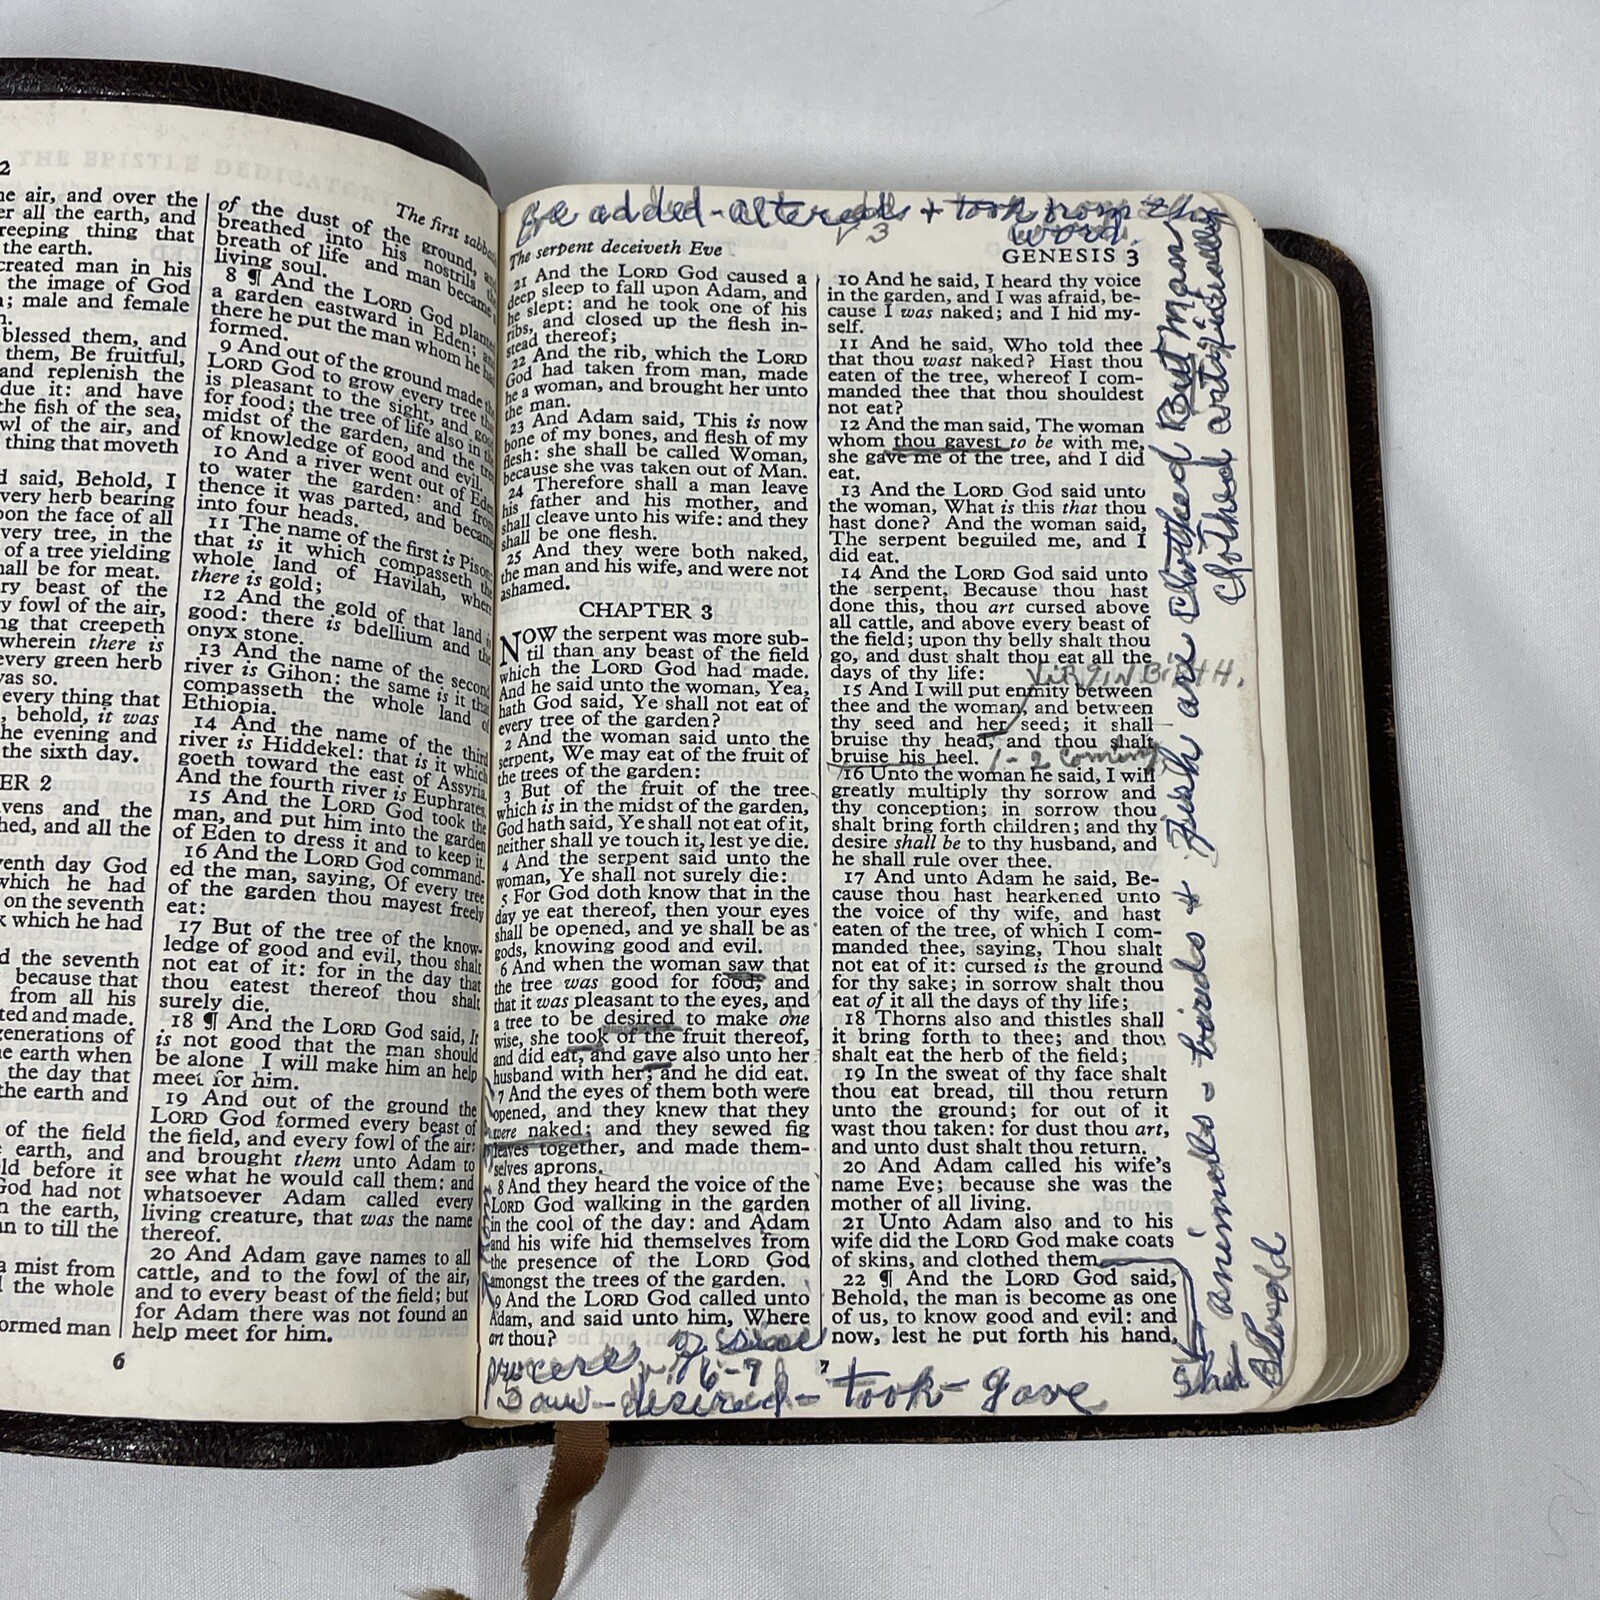 2
THE EPISTLE DEDICATORY
The first sabba
ne air, and over the
er all the earth, and
reeping thing that
the earth.
created man in his
the image of God
; male and female
n.
blessed them, and
them, Be fruitful,
and replenish the
due it: and have
the fish of the sea,
wl of the air, and
thing that moveth
d said, Behold, I
very herb bearing
pon the face of all
very tree, in the
of a tree yielding
hall be for meat.
ry beast of the
y fowl of the air,
ng that creepeth
wherein there is
every green herb
was so.
every thing that
, behold, it was
he evening and
the sixth day.
ER 2
avens and the
hed, and all the
venth day God
which he had
on the seventh
k which he had
d the seventh
because that
from all his
ted and made.
generations of
e earth when
the day that
the earth and
of the field
earth, and
ld before it
God had not
n the earth,
an to till the
a mist from
the whole
ormed man
of the dust of the ground, and
breathed into his nostrils the
breath of life and man became a
living soul.
8 ¶ And the LORD God planted
a garden eastward in Eden; and
there he put the man whom he had
formed.
9 And out of the ground made the
LORD God to grow every tree that
is pleasant to the sight, and good
for food; the tree of life also in the
midst of the garden, and the tree
of knowledge of good and evil.
10 And a river went out of Eden
to water the garden: and from
thence it was parted, and became
into four heads.
11 The name of the first is Pison:
that is it which compasseth the
whole land of Havilah, where
there is gold;
12 And the gold of that land is
good: there is bdellium and the
onyx stone.
13 And the name of the second
river is Gihon: the same is it that
compasseth the whole land of
Ethiopia.
14 And the name of the third
river is Hiddekel: that is it which
goeth toward the east of Assyria.
And the fourth river is Euphrates.
15 And the LORD God took the
man, and put him into the garden
of Eden to dress it and to keep it.
16 And the LORD God command-
ed the man, saying, Of every tree
of the garden thou mayest freely
eat:
17 But of the tree of the know-
ledge of good and evil, thou shalt
not eat of it: for in the day that
thou eatest thereof thou shalt
surely die.
18 ¶ And the LORD God said, It
is not good that the man should
be alone I will make him an help
meet for him.
19 And out of the ground the
LORD God formed every beast of
the field, and every fowl of the air;
and brought them unto Adam to
see what he would call them: and
whatsoever Adam called every
living creature, that was the name
thereof.
20 And Adam gave names to all
cattle, and to the fowl of the air,
and to every beast of the field; but
for Adam there was not found an
help meet for him.
6
Eve added - altered + took from the
v 3 word.
The serpent deceiveth Eve
GENESIS 3
21 And the LORD God caused a
deep sleep to fall upon Adam, and
he slept: and he took one of his
ribs, and closed up the flesh in-
stead thereof;
22 And the rib, which the LORD
God had taken from man, made
he a woman, and brought her unto
the man.
23 And Adam said, This is now
bone of my bones, and flesh of my
flesh: she shall be called Woman,
because she was taken out of Man.
24 Therefore shall a man leave
his father and his mother, and
shall cleave unto his wife: and they
shall be one flesh.
25 And they were both naked,
the man and his wife, and were not
ashamed.
CHAPTER 3
NOW the serpent was more sub-
til than any beast of the field
which the LORD God had made.
And he said unto the woman, Yea,
hath God said, Ye shall not eat of
every tree of the garden?
2 And the woman said unto the
serpent, We may eat of the fruit of
the trees of the garden:
3 But of the fruit of the tree
which is in the midst of the garden,
God hath said, Ye shall not eat of it,
neither shall ye touch it, lest ye die.
4 And the serpent said unto the
woman, Ye shall not surely die:
5 For God doth know that in the
day ye eat thereof, then your eyes
shall be opened, and ye shall be as
gods, knowing good and evil.
6 And when the woman saw that
the tree was good for food, and
that it was pleasant to the eyes, and
a tree to be desired to make one
wise, she took of the fruit thereof,
and did eat, and gave also unto her
husband with her; and he did eat.
7 And the eyes of them both were
opened, and they knew that they
were naked; and they sewed fig
leaves together, and made them-
selves aprons.
8 And they heard the voice of the
LORD God walking in the garden
in the cool of the day: and Adam
and his wife hid themselves from
the presence of the LORD God
amongst the trees of the garden.
9 And the LORD God called unto
Adam, and said unto him, Where
art thou?
of sin
v. 6-7
Saw - desired - took - gave
10 And he said, I heard thy voice
in the garden, and I was afraid, be-
cause I was naked; and I hid my-
self.
11 And he said, Who told thee
that thou wast naked? Hast thou
eaten of the tree, whereof I com-
manded thee that thou shouldest
not eat?
12 And the man said, The woman
whom thou gavest to be with me,
she gave me of the tree, and I did
eat.
13 And the LORD God said unto
the woman, What is this that thou
hast done? And the woman said,
The serpent beguiled me, and I
did eat.
14 And the LORD God said unto
the serpent, Because thou hast
done this, thou art cursed above
all cattle, and above every beast of
the field; upon thy belly shalt thou
go, and dust shalt thou eat all the
days of thy life:
VIRGIN BIRTH.
15 And I will put enmity between
thee and the woman, and between
thy seed and her seed; it shall
bruise thy head, and thou shalt
bruise his heel.
1-2 coming
16 Unto the woman he said, I will
greatly multiply thy sorrow and
thy conception; in sorrow thou
shalt bring forth children; and thy
desire shall be to thy husband, and
he shall rule over thee.
17 And unto Adam he said, Be-
cause thou hast hearkened unto
the voice of thy wife, and hast
eaten of the tree, of which I com-
manded thee, saying, Thou shalt
not eat of it: cursed is the ground
for thy sake; in sorrow shalt thou
eat of it all the days of thy life;
18 Thorns also and thistles shall
it bring forth to thee; and thou
shalt eat the herb of the field;
19 In the sweat of thy face shalt
thou eat bread, till thou return
unto the ground; for out of it
wast thou taken: for dust thou art,
and unto dust shalt thou return.
20 And Adam called his wife's
name Eve; because she was the
mother of all living.
21 Unto Adam also and to his
wife did the LORD God make coats
of skins, and clothed them.
22 ¶ And the LORD God said,
Behold, the man is become as one
of us, to know good and evil: and
now, lest he put forth his hand,
7
Shed
Blood
animals - birds + Fish are Clothed But Man
Clothed